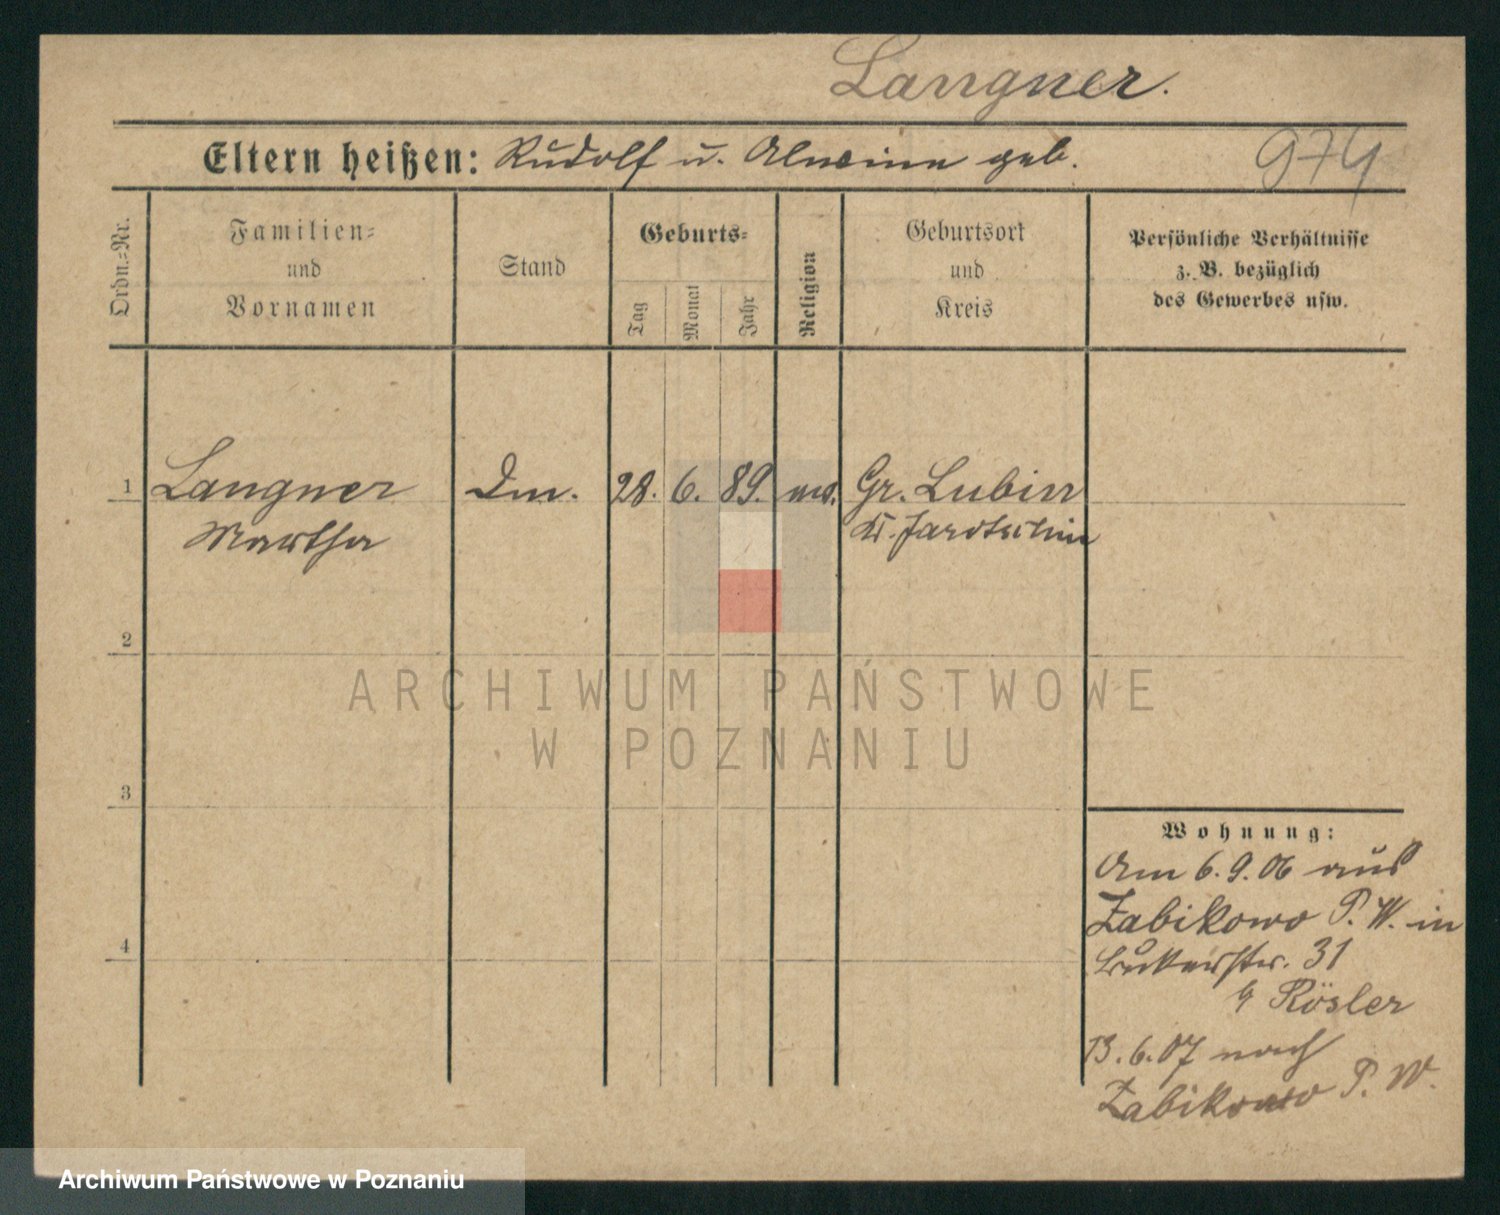 Langner.
Eltern heißen: Rudolf u. Alwine geb.
974
Ordn.-Nr.
Familien-
und
Vornamen
Stand
Geburts-
Tag
Monat
Jahr
Religion
Geburtsort
und
Kreis
Persönliche Verhältnisse
z. B. bezüglich
des Gewerbes usw.
1 Langner 28. 6. 89. Gr. Lubin
Martha Kr. Jarotschin
2
3
4
Wohnung:
Am 6. 9. 06 aus
Zabikowo P. W. in
Bukerstr. 31
b Rösler
13. 6. 07 nach
Zabikowo P. W.
ARCHIWUM PAŃSTWOWE
W POZNANIU
Archiwum Państwowe w Poznaniu